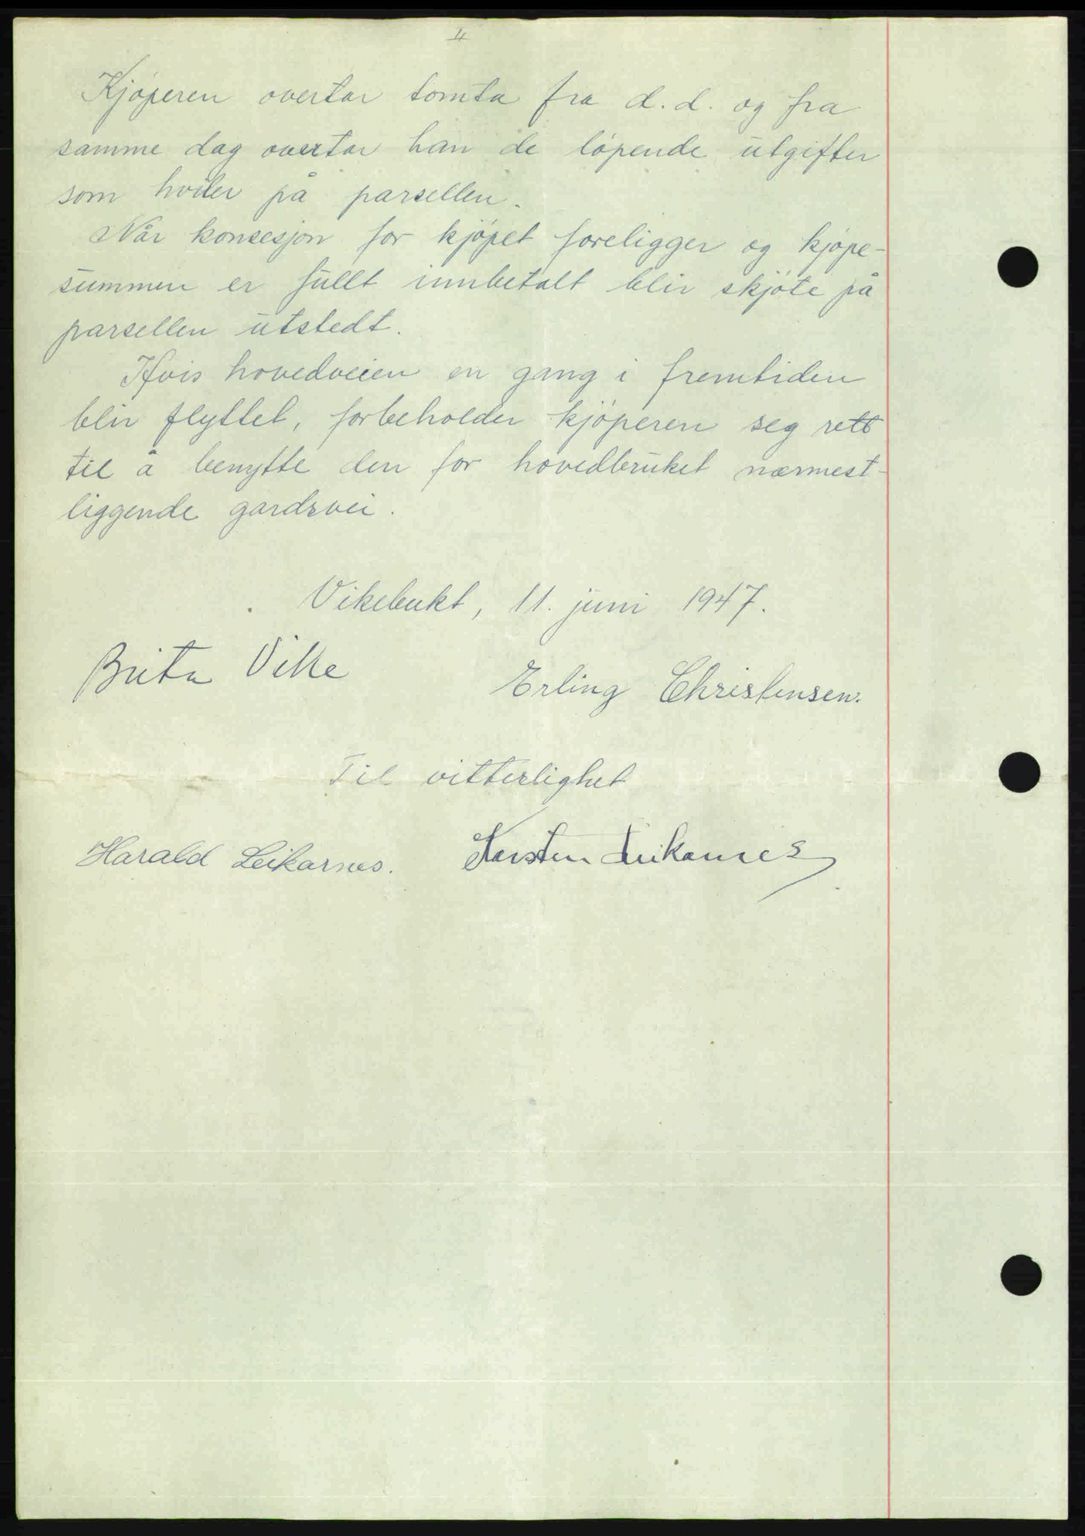 4
Kjøperen overtar tomta fra d.d. og fra
samme dag overtar han de løpende utgifter
som hviler på parsellen.
Når konsesjon for kjøpet foreligger og kjøpe-
summen er fullt innbetalt blir skjøte på
parsellen utstedt.
Hvis hovedveien en gang i fremtiden
blir flyttet, forbeholder kjøperen seg rett
til å benytte den for hovedbruket nærmest-
liggende gardsvei.
Vikebukt, 11. juni 1947.
Brita Vike
Erling Christensen.
Til vitterlighet
Harald Leikarnes.
Karsten Leikarnes